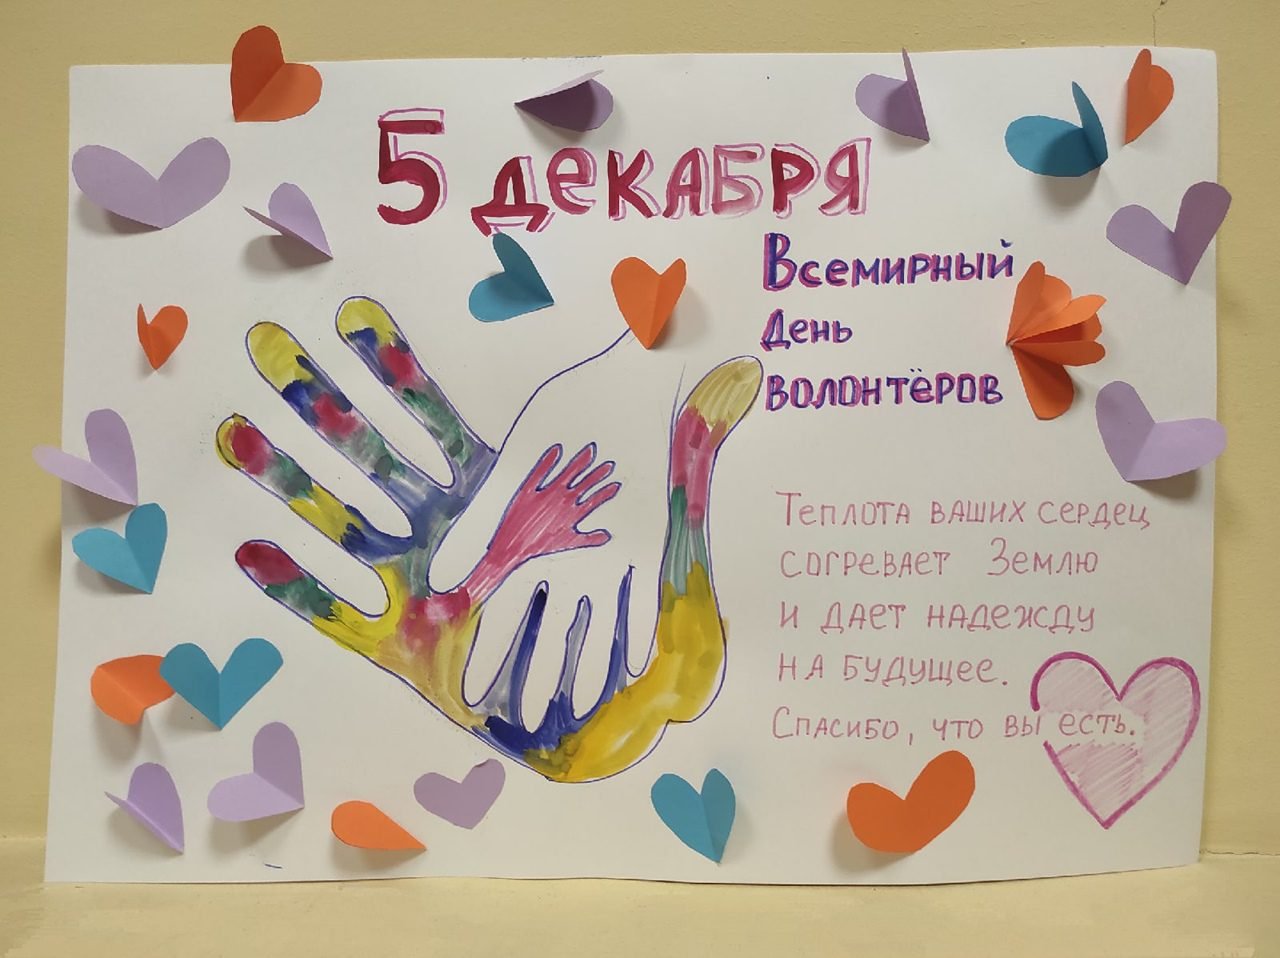 5 декабря
Всемирный
День
волонтёров
Теплота ваших сердец
согревает Землю
и дает надежду
на будущее.
Спасибо, что вы есть.